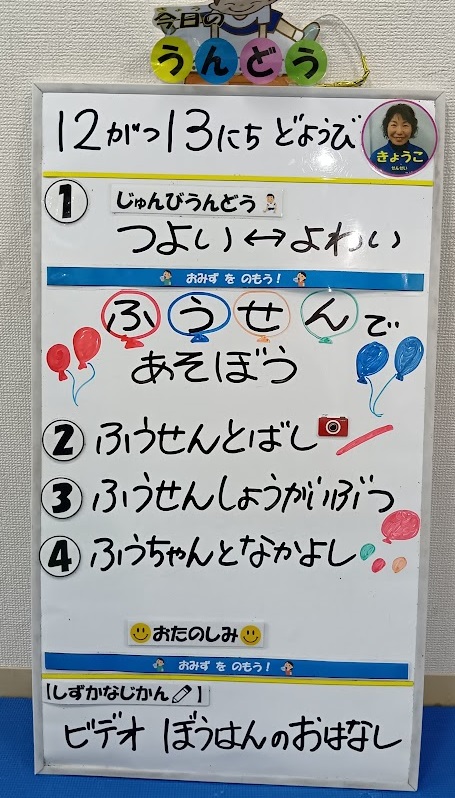 今日の
うんどう
12がつ13にち どようび
きょうこ
せんせい
1 じゅんびうんどう
つよい↔よわい
おみず を のもう!
ふうせんで
あそぼう
2 ふうせんとばし
3 ふうせんしょうがいぶつ
4 ふうちゃんとなかよし
おたのしみ
おみず を のもう!
【しずかなじかん】
ビデオ ぼうはんのおはなし